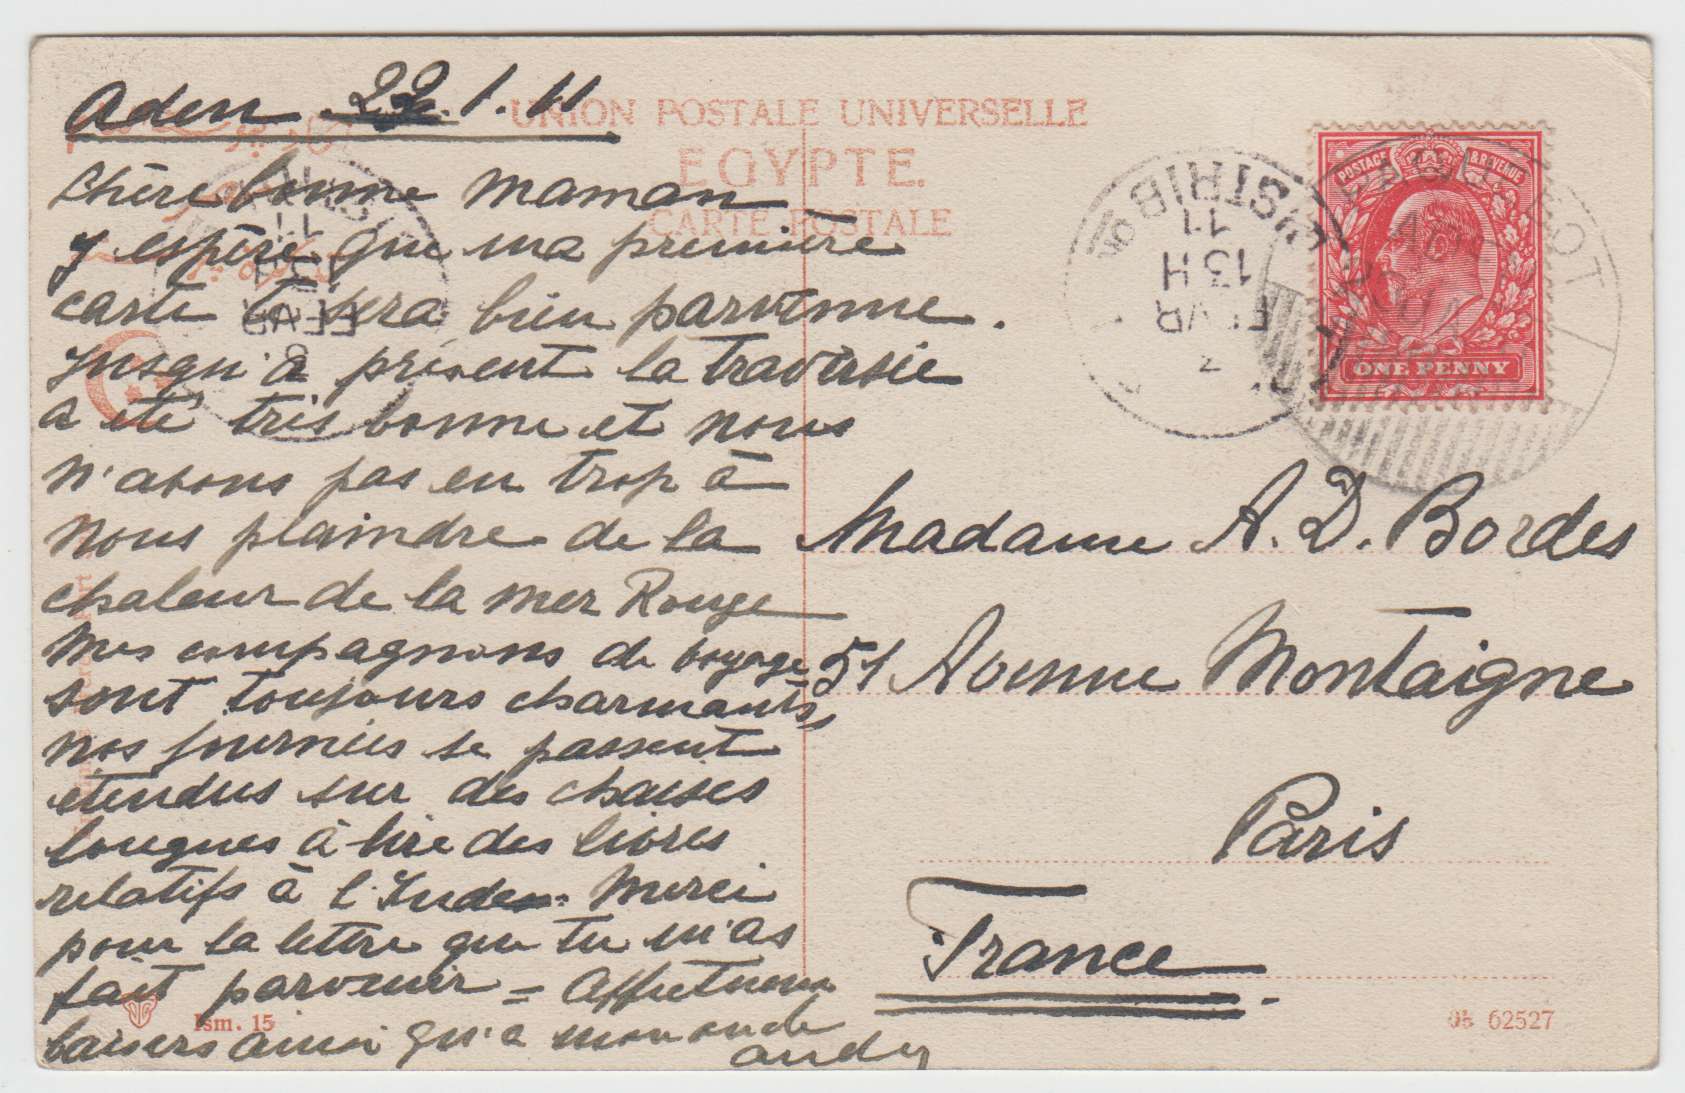 Aden 22.1.11
UNION POSTALE UNIVERSELLE
EGYPTE.
CARTE POSTALE
Chère bonne Maman
J'espère que ma première
carte te sera bien parvenue.
Jusqu'à présent la traversée
a été très bonne et nous
n'avons pas eu trop à
nous plaindre de la
chaleur de la mer Rouge
Mes compagnons de voyage
sont toujours charmants,
nos journées se passent
étendus sur des chaises
longues à lire des livres
relatifs à l'Inde. Merci
pour la lettre que tu m'as
fait parvenir = Affectueux
baisers ainsi qu'à mon oncle
Ism. 15
POSTAGE & REVENUE
ONE PENNY
DISTRIBON
11
13H
FEVR
2
11
13H
FEVR
PAQUEBOT
Madame A. D. Bordes
51 Avenue Montaigne
Paris
France
62527